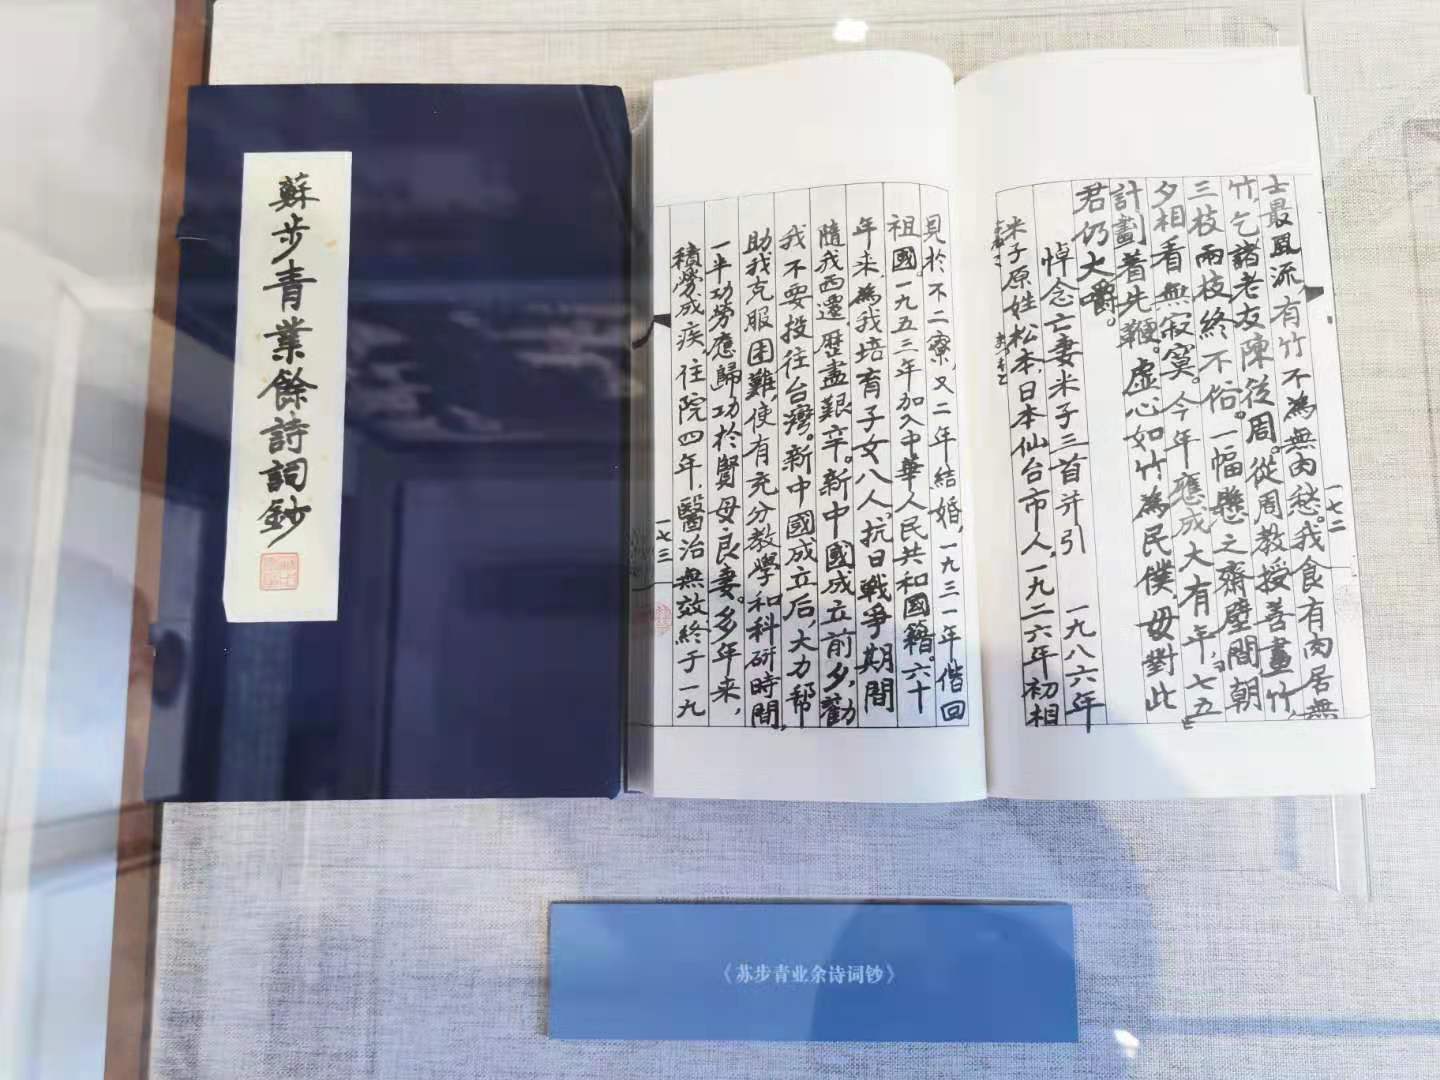 蘇步青業餘詩詞鈔
士最風流有竹不為無肉愁。我食有肉居無
竹,乞諸老友陳從周。從周教授善畫竹,
三枝兩枝終不俗。一幅懸之齋壁間,朝
夕相看無寂寞。今年應成大有年,七五
計劃着先鞭。虛心如竹為民僕,毋對此
君仍大嚼。
悼念亡妻米子三首并引 一九八六年
米子原姓松本,日本仙台市人,一九二六年初相
一七二
見於不二寮,又二年結婚,一九三一年偕回
祖國。一九五三年加入中華人民共和國籍。六十
年来為我培育子女八人。抗日戰爭期間
隨我西遷,歷盡艱辛。新中國成立前夕,勸
我不要投往台灣。新中國成立后,大力幫
助我克服困難,使有充分教學和科研時間,
一半功勞應歸功於賢母良妻。多年来,
積勞成疾。住院四年,醫治無效終于一九
一七三
《苏步青业余诗词钞》